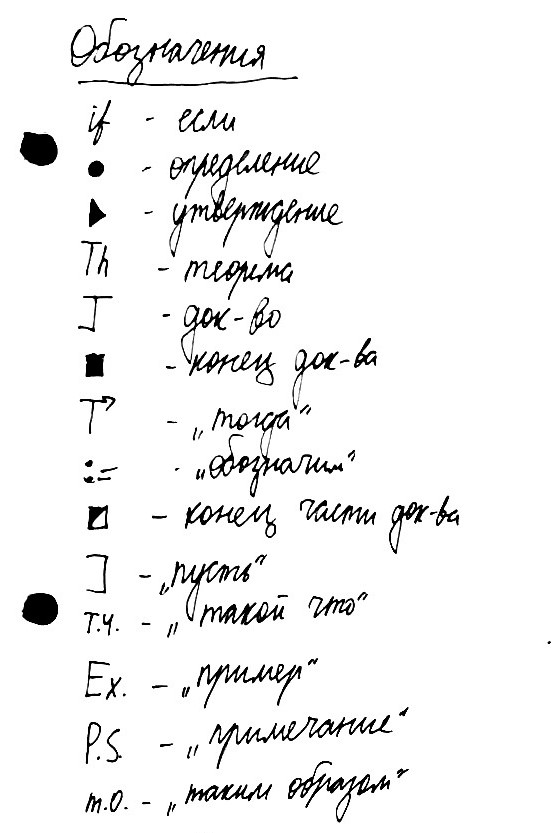 Обозначения
if - если
● - определение
▶ - утверждение
Th - теорема
J - док-во
■ - конец док-ва
T - „тогда“
:= - „обозначим“
◩ - конец части док-ва
] - „пусть“
т.ч. - „такой что“
Ex. - „пример“
P.S. - „примечание“
т.о. - „таким образом“